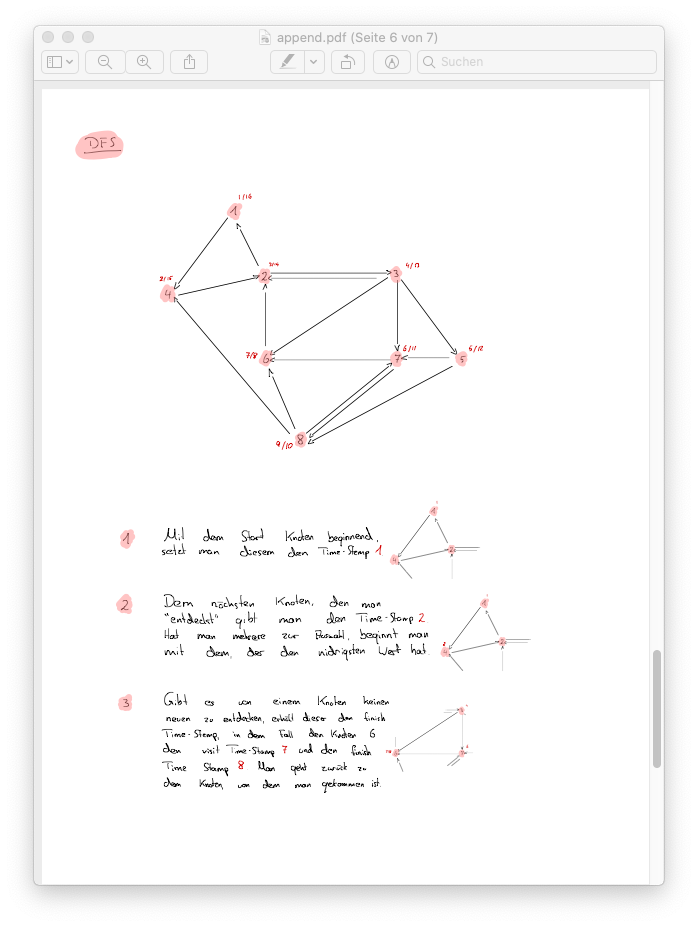 append.pdf (Seite 6 von 7)
Suchen
DFS
1/16
1
2/15
4
3/14
2
4/13
3
7/8
6
6/11
7
5/12
5
9/10
8
1
Mit dem Start Knoten beginnend,
setzt man diesem den Time-Stemp 1
1
4
2
2
Dem nächsten Knoten, den man
"entdeckt" gibt man den Time-Stamp 2.
Hat man mehrere zur Auswahl, beginnt man
mit dem, der den nidrigsten Wert hat.
1
4
2
3
Gibt es von einem Knoten keinen
neuen zu entdecken, erhält dieser den finish
Time-Stemp, in dem Fall den Knoten 6
den visit Time-Stamp 7 und den finish
Time Stamp 8 Man geht zurück zu
dem Knoten, von dem man gekommen ist.